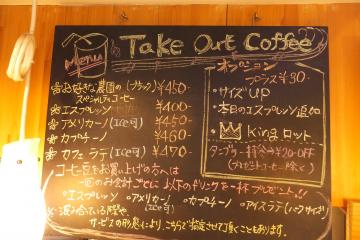 Menu
Take Out Coffee
お好きな農園の(ブラック) ¥450
スペシャルティコーヒー
エスプレッソ ¥400
アメリカーノ(ICE可) ¥450
カプチーノ ¥460
カフェラテ(ICE可) ¥470
オプション
プラス¥80
・サイズUP
・本日のエスプレッソ追加
Kingロット
タンブラー持参→¥20-OFF
(プレゼントコーヒー除く)
コーヒー豆をお買い上げの方へは
一回のお会計ごとに以下のドリンクを一杯プレゼント!!
・エスプレッソ ・アメリカーノ ・カプチーノ ・アイスラテ(ハーフサイズ)
(ICE可)
※混み合っている際や
サービスの形態により、こちらで指定させて頂くこともあります。